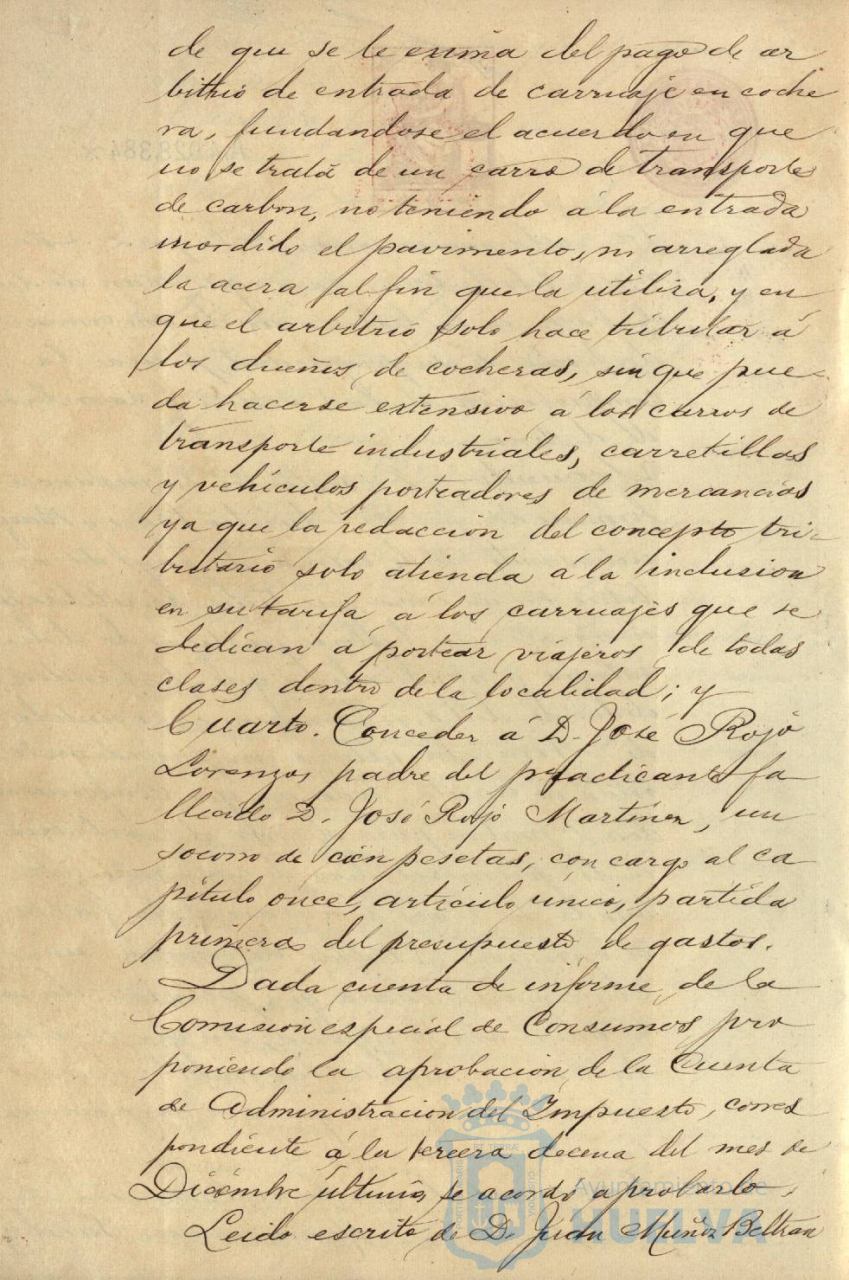 de que se le exima del pago de ar
bitrio de entrada de carruaje en coche
ra, fundandose el acuerdo en que
no se trata de un carro de transportes
de carbon, no teniendo á la entrada
mordido el pavimento, ni arreglada
la acera al fin que la utiliza, y en
que el arbitrio solo hace tributar á
los dueños de cocheras, sin que pue-
da hacerse extensivo á los carros de
transporte industriales, carretillas
y vehículos porteadores de mercancias
ya que la redacción del concepto tri-
butario solo atienda á la inclusion
en su tarifa á los carruajes que se
dedican á portear viajeros de todas
clases dentro de la localidad; y
Cuarto. Conceder á D. José Rojo
Lorenzo, padre del practicante fa-
llecido D. José Rojo Martínez, un
socorro de cien pesetas, con cargo al ca
pítulo once, artículo único, partida
primera del presupuesto de gastos.
Dada cuenta de informe de la
Comision especial de Consumos pro
poniendo la aprobacion de la Cuenta
de Administracion del Impuesto, corres
pondiente á la tercera decena del mes de
Diciembre último, se acordó aprobarlo.
Leido escrito de D. Juan Muñoz Beltran
Ayuntamiento de
HUELVA